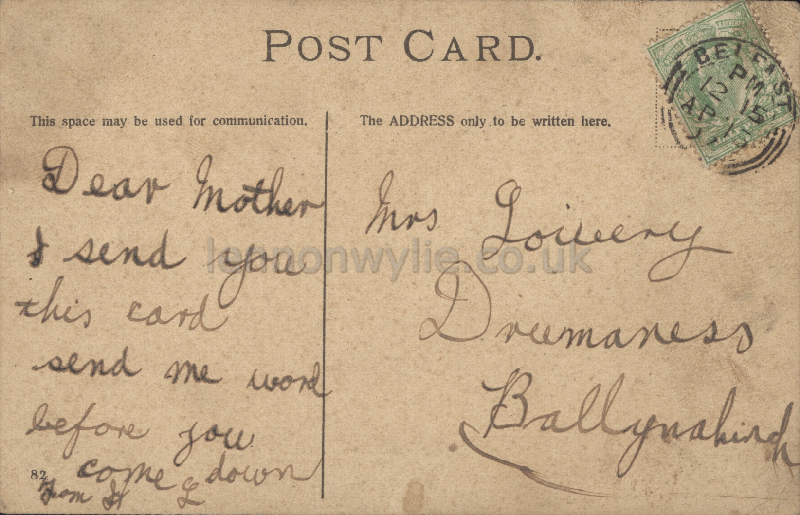 POST CARD.
BELFAST
PM
12 15
AP
This space may be used for communication.
The ADDRESS only to be written here.
Dear Mother
I send you
this card
send me word
before you
come down
82
From
Mrs Lowery
Drumaness
Ballynahinch
lennonwylie.co.uk